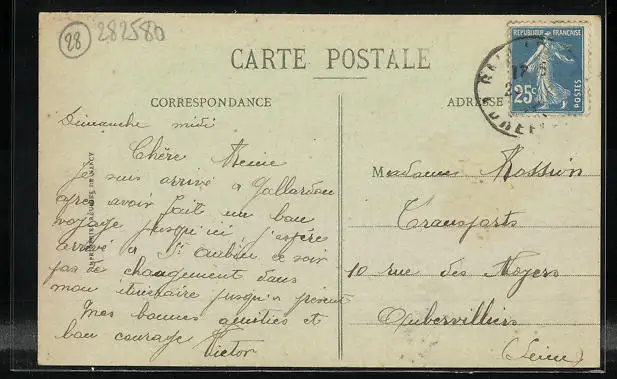 28
282580
CARTE POSTALE
RÉPUBLIQUE FRANÇAISE
25c
POSTES
CORRESPONDANCE
ADRESSE
Dimanche midi
Chère Reine
Je suis arrivé a Gallardon
apre avoir fait un bon
voyage jusqu'ici j'espère
arrivé a St Aubin ce soir
pas de changement dans
mon itinéraire jusqu'a présent
Mes bonnes amitiés et
bon courage Victor
IMPRIMERIES RÉUNIES DE NANCY
Madame Massion
Transports
10 rue des Noyers
Aubervilliers
(Seine)